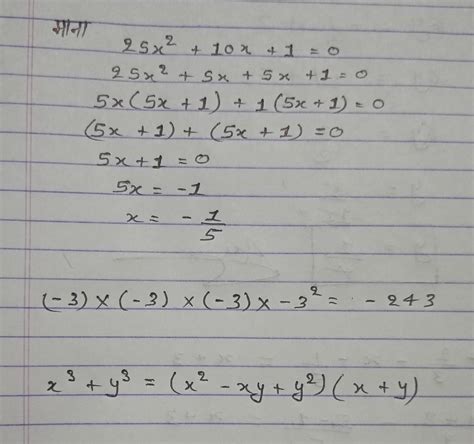 माना
25x² + 10x + 1 = 0
25x² + 5x + 5x + 1 = 0
5x(5x + 1) + 1(5x + 1) = 0
(5x + 1) + (5x + 1) = 0
5x + 1 = 0
5x = -1
x = - 1/5
(-3) × (-3) × (-3) × -3² = - 243
x³ + y³ = (x² - xy + y²)(x + y)